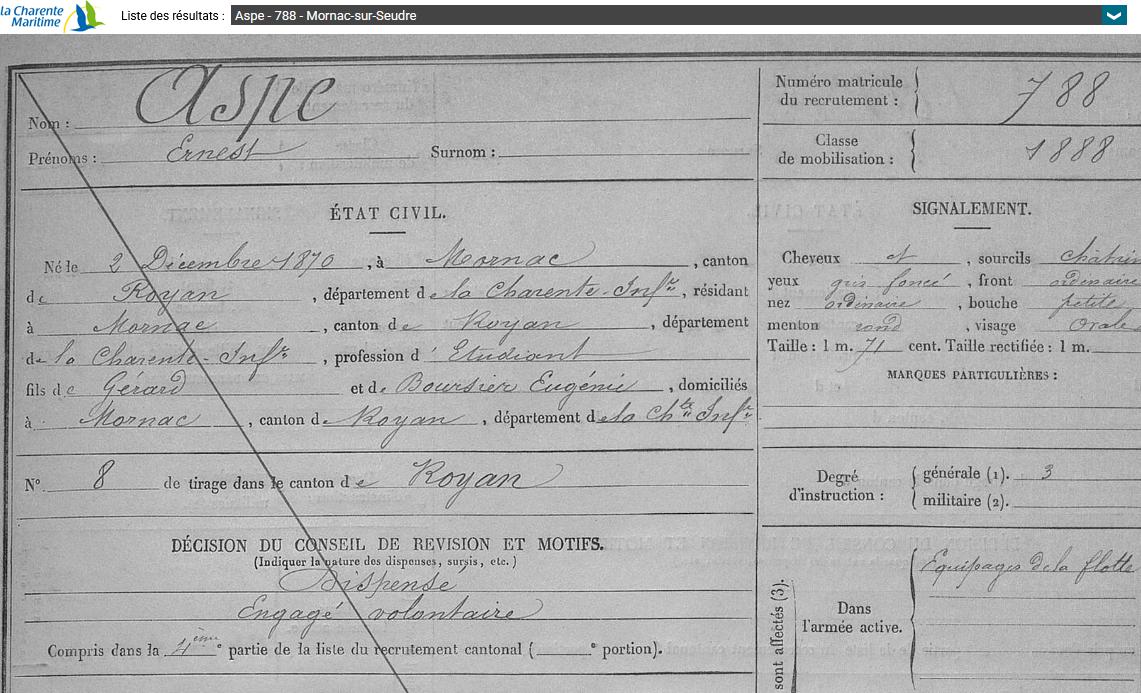 la Charente
Maritime
Liste des résultats : Aspe - 788 - Mornac-sur-Seudre
Nom : Aspe
Prénoms : Ernest Surnom :
Numéro matricule
du recrutement : 788
Classe
de mobilisation : 1888
ÉTAT CIVIL.
Né le 2 Décembre 1870, à Mornac, canton
de Royan, département de la Charente-Infre, résidant
à Mornac, canton de Royan, département
de la Charente-Infre, profession d'Etudiant
fils de Gérard et de Boursier Eugénie, domiciliés
à Mornac, canton de Royan, département de la Chte Infre
N° 8 de tirage dans le canton de Royan
DÉCISION DU CONSEIL DE REVISION ET MOTIFS.
(Indiquer la nature des dispenses, sursis, etc.)
Dispensé
Engagé volontaire
Compris dans la 4ème e partie de la liste du recrutement cantonal ( e portion).
SIGNALEMENT.
Cheveux et, sourcils
yeux gris foncé, front ordinaire
nez ordinaire, bouche petite
menton rond, visage Ovale
Taille : 1 m. 71 cent. Taille rectifiée : 1 m.
MARQUES PARTICULIÈRES :
Degré
d'instruction :
générale (1). 3
militaire (2).
sont affectés (3).
Dans
l'armée active.
Equipages de la flotte